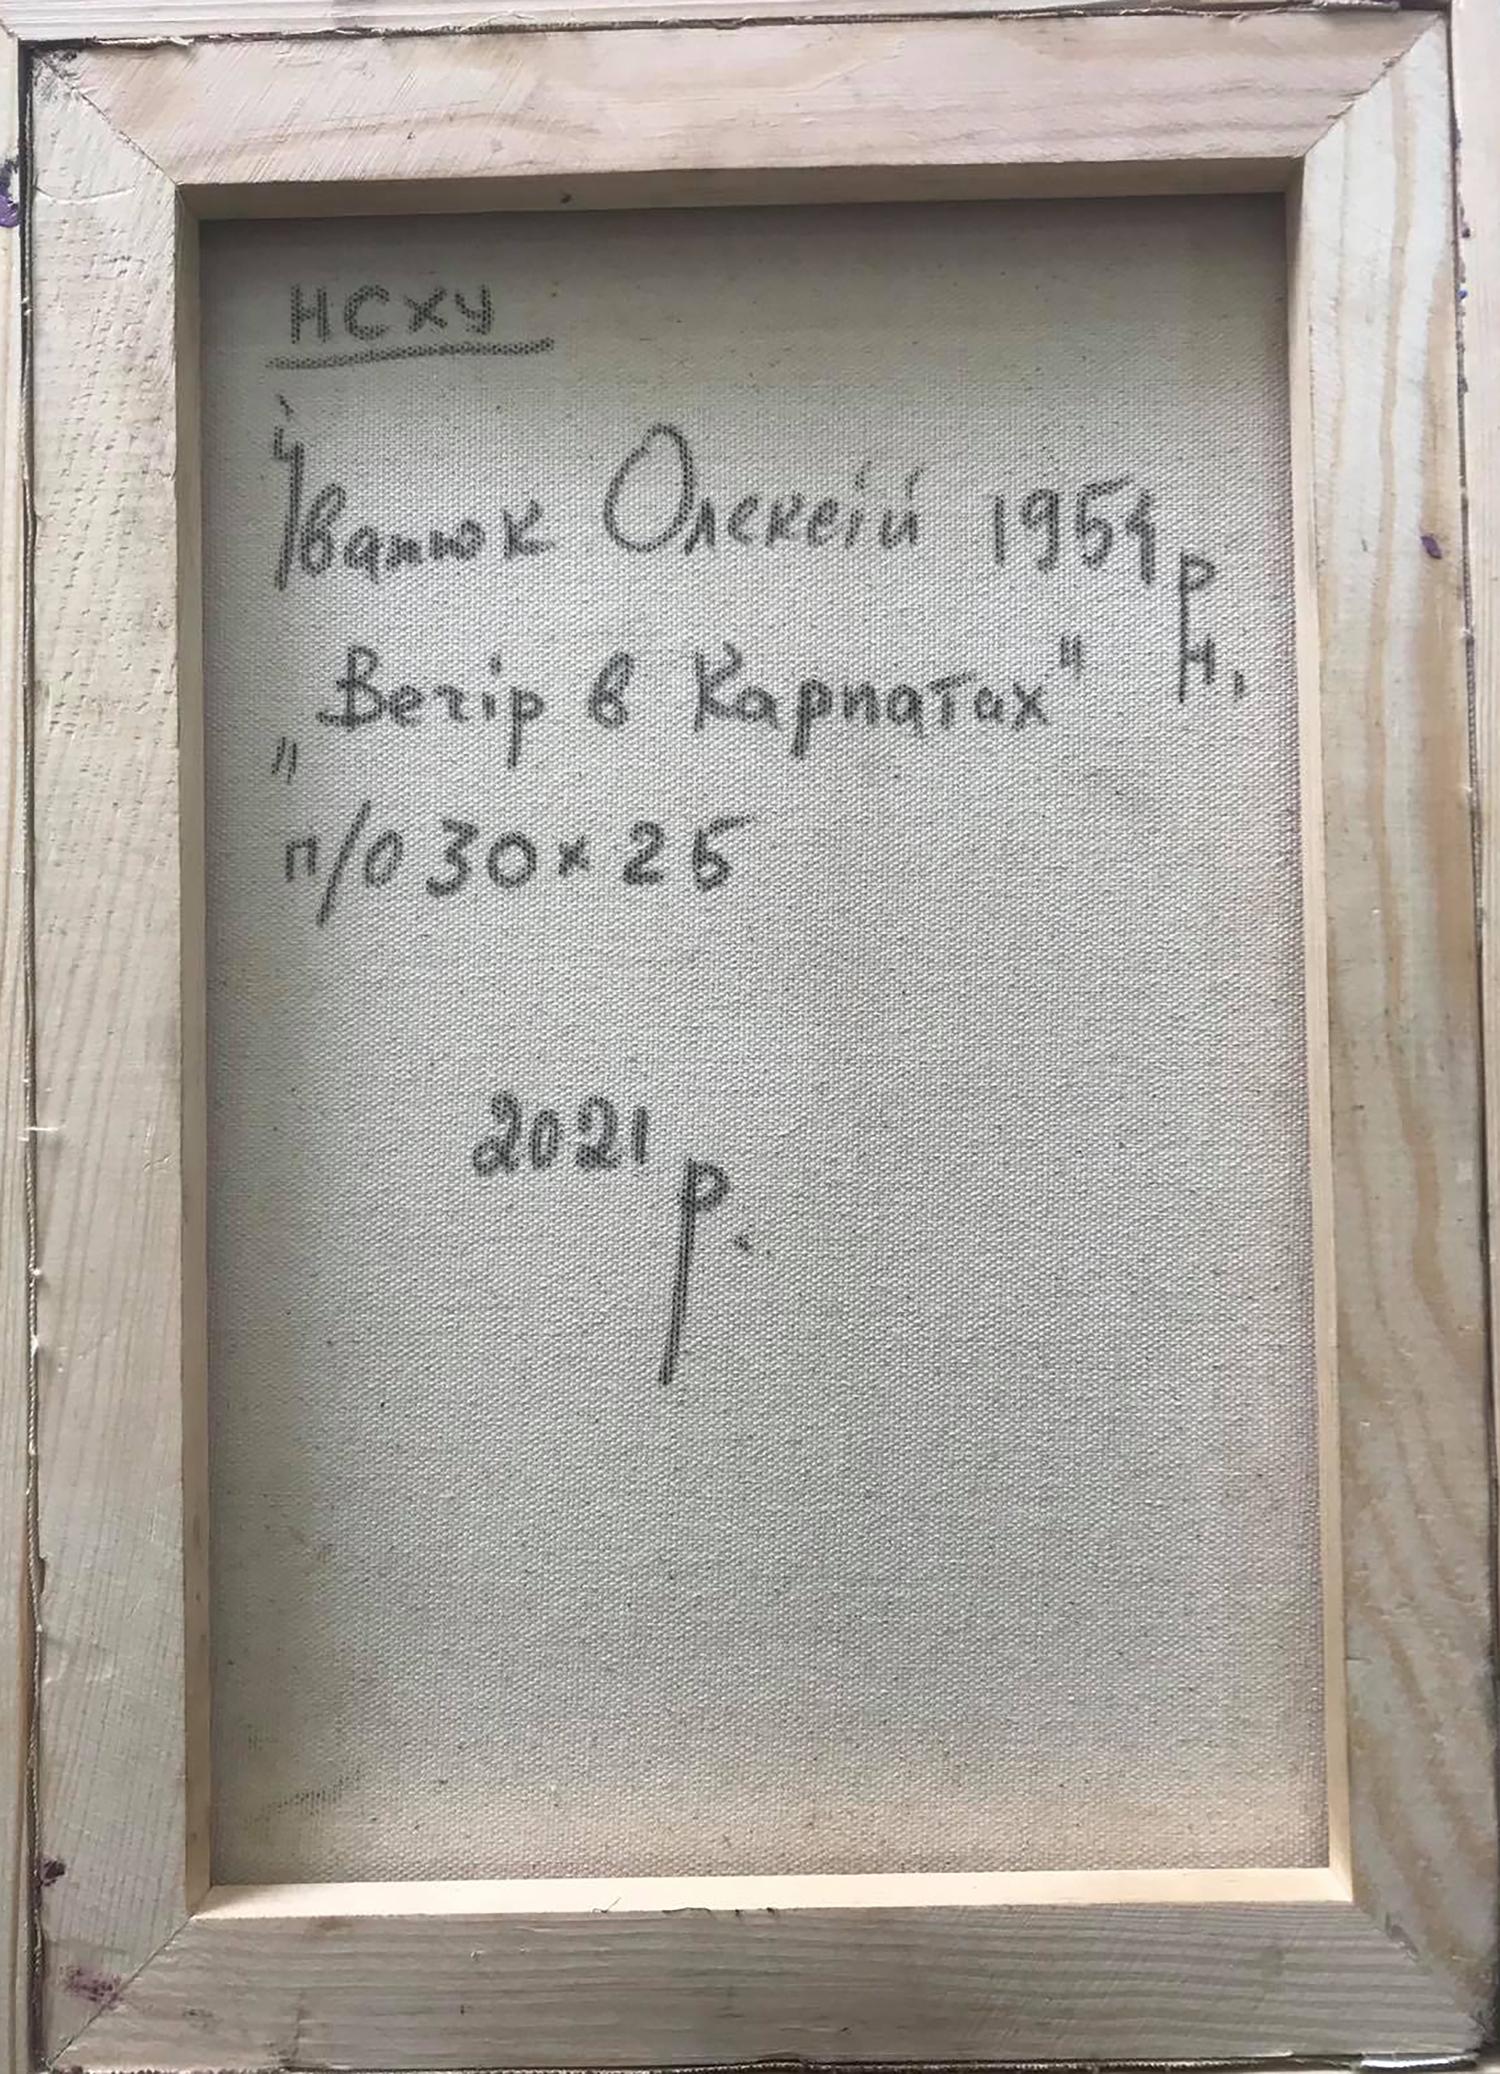 НСХУ
Іванюк Олексій 1954 р н.
"Вечір в Карпатах"
п/о 30×25
2021 р.